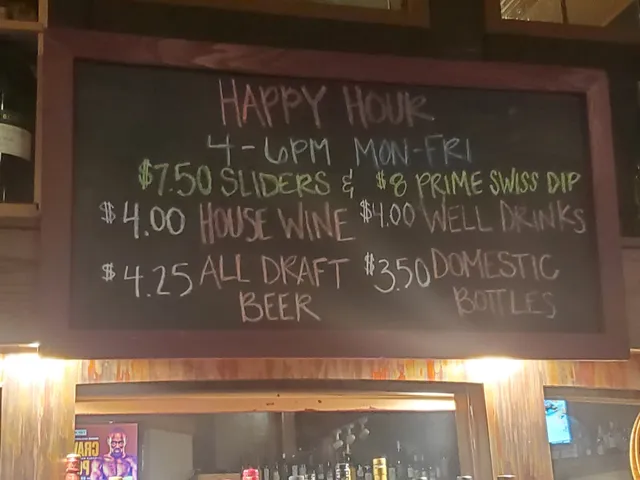 HAPPY HOUR
4-6PM MON-FRI
$7.50 SLIDERS & $8 PRIME SWISS DIP
$4.00 HOUSE WINE $4.00 WELL DRINKS
$4.25 ALL DRAFT BEER
$3.50 DOMESTIC BOTTLES